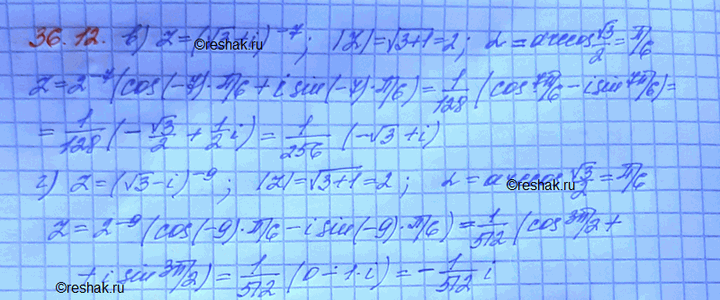 36.12. в) z=(√3+i)⁻⁷; |z|=√3+1=2; α=arccos √3/2=π/6
z=2⁻⁷(cos(-7)·π/6+i sin(-7)·π/6)=1/128(cos 7π/6-i sin 7π/6)=
=1/128(-√3/2+1/2 i)=1/256(-√3+i)
г) z=(√3-i)⁻⁹; |z|=√3+1=2; α=arccos √3/2=π/6
z=2⁻⁹(cos(-9)·π/6-i sin(-9)·π/6)=1/512(cos 3π/2+
+i sin 3π/2)=1/512(0-1·i)=-1/512 i
©5terka.com